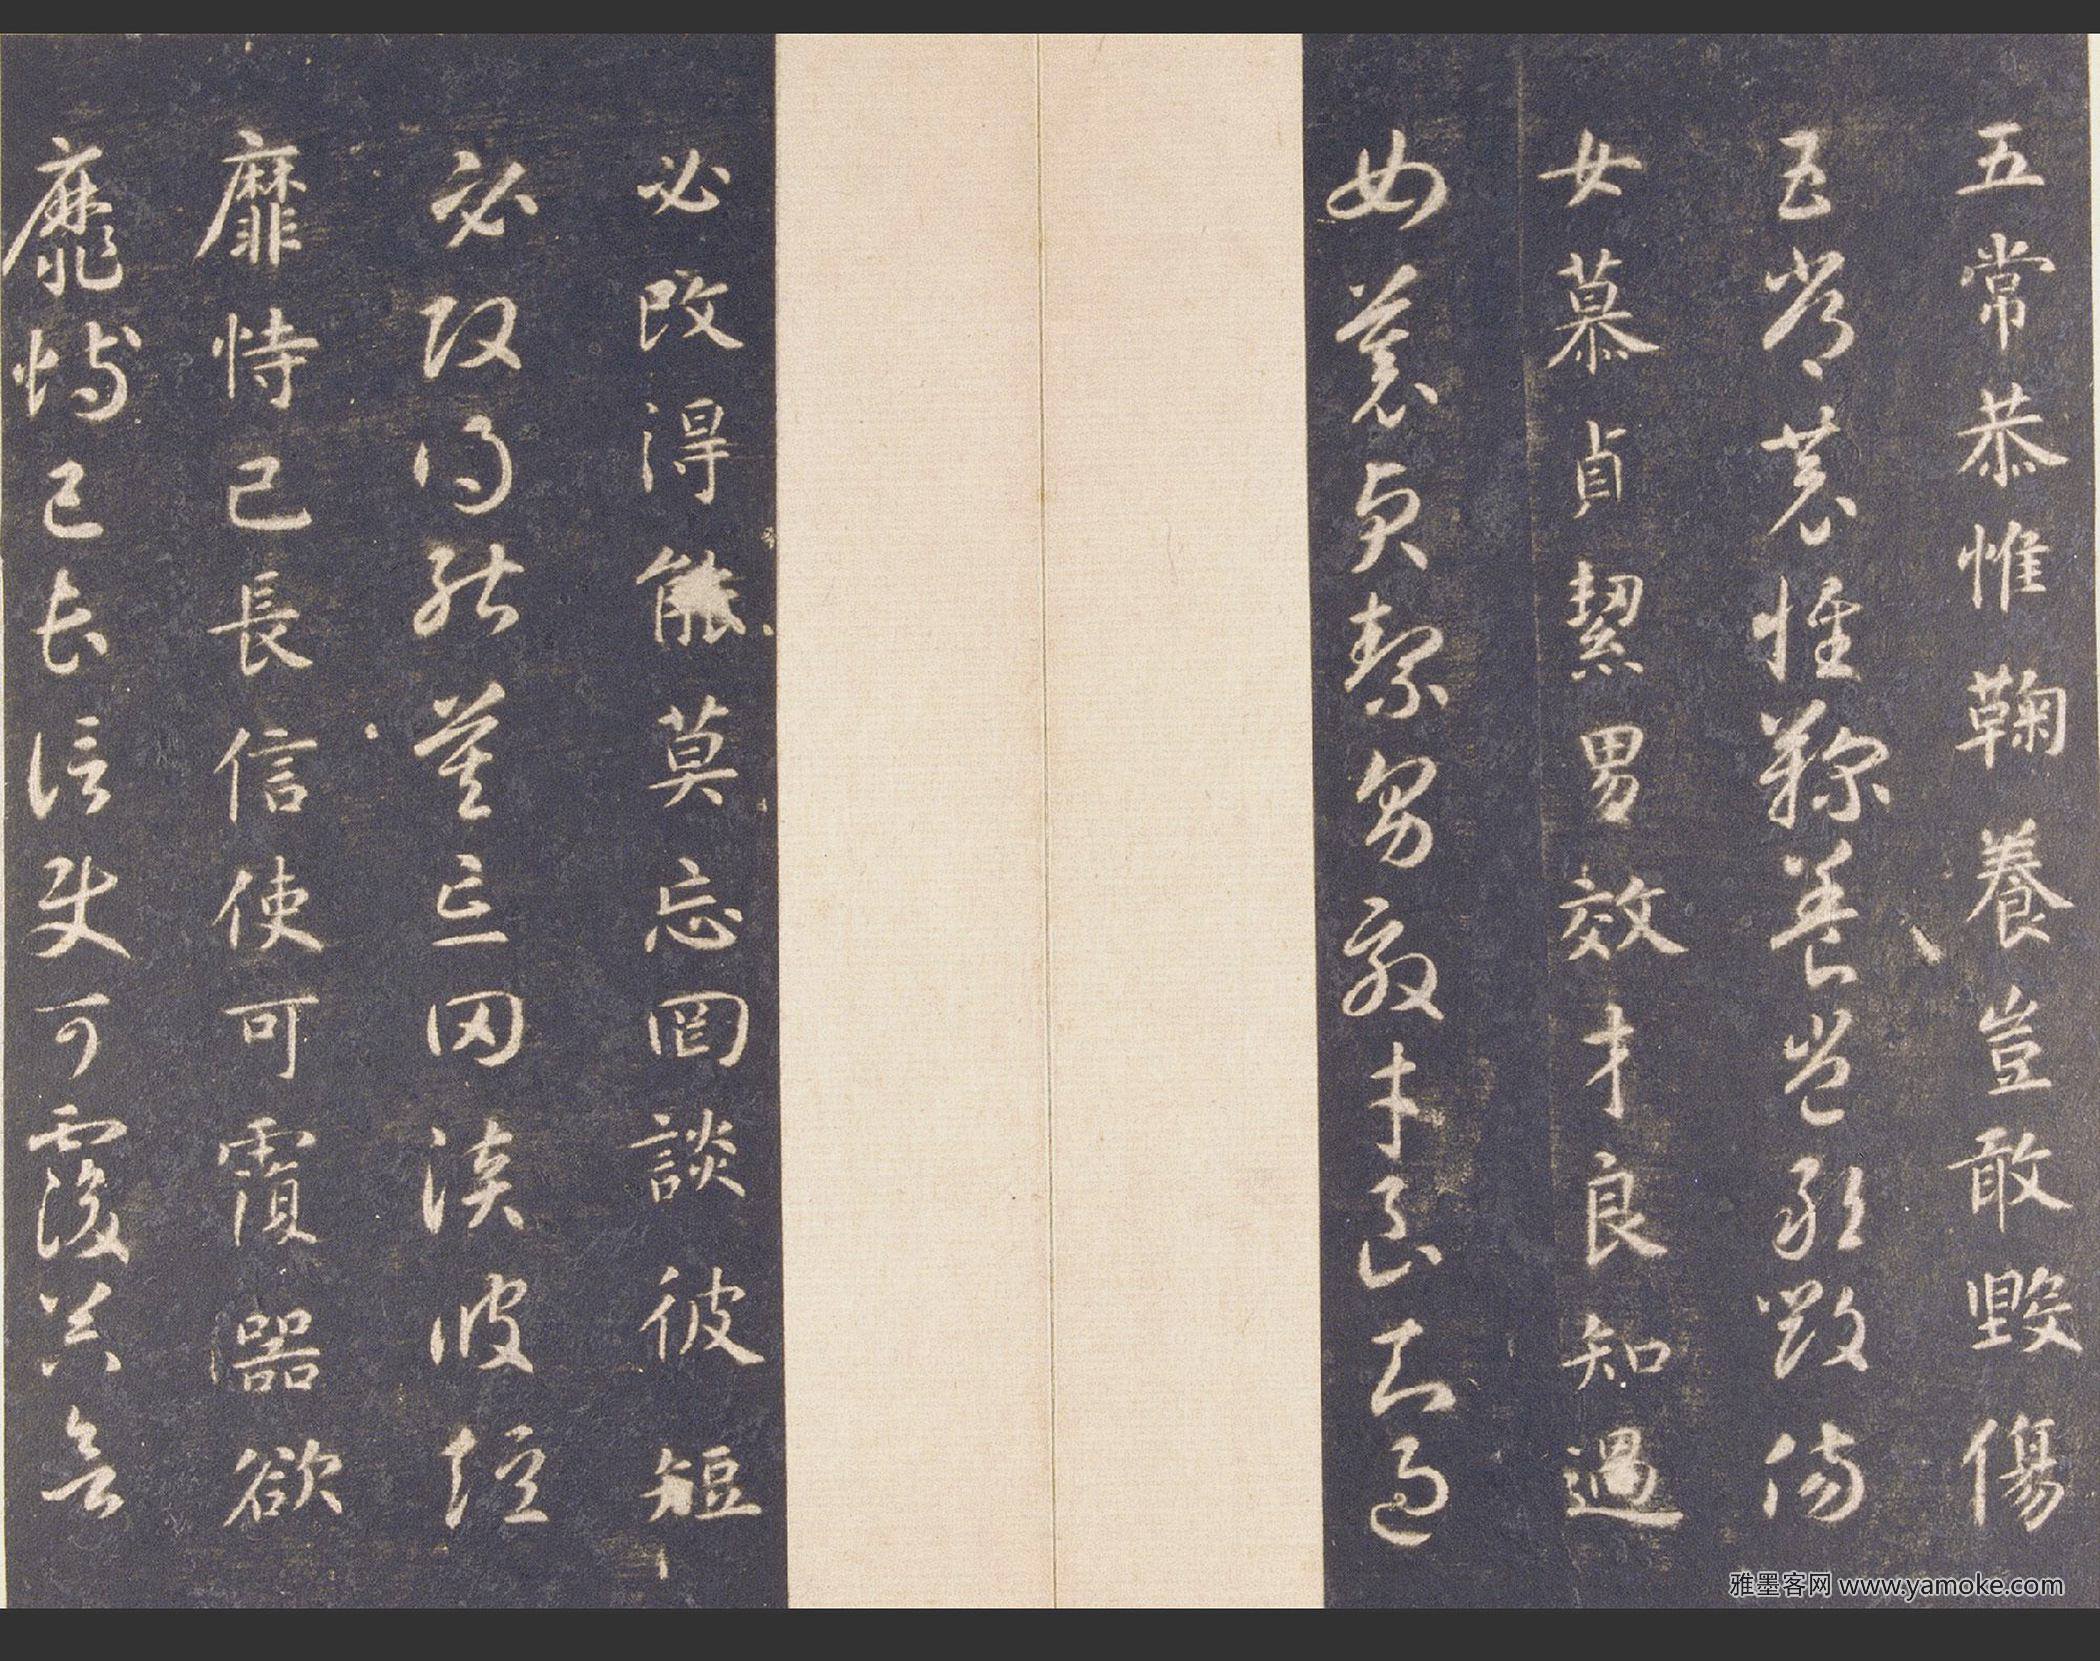 五常恭惟鞠養豈敢毀傷
五常恭惟鞠養豈敢毀傷
女慕貞絜男效才良知過
女慕貞絜男效才良知過
必改得能莫忘罔談彼短
必改得能莫忘罔談彼短
靡恃己長信使可覆器欲
靡恃己長信使可覆器欲
雅墨客网 www.yamoke.com